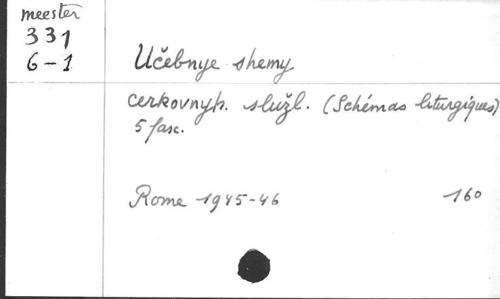 meester
331
6-1
Učebnye shemy
cerkovnyh. služb. (Schémas liturgiques)
5 fasc.
Rome 1945-46 160